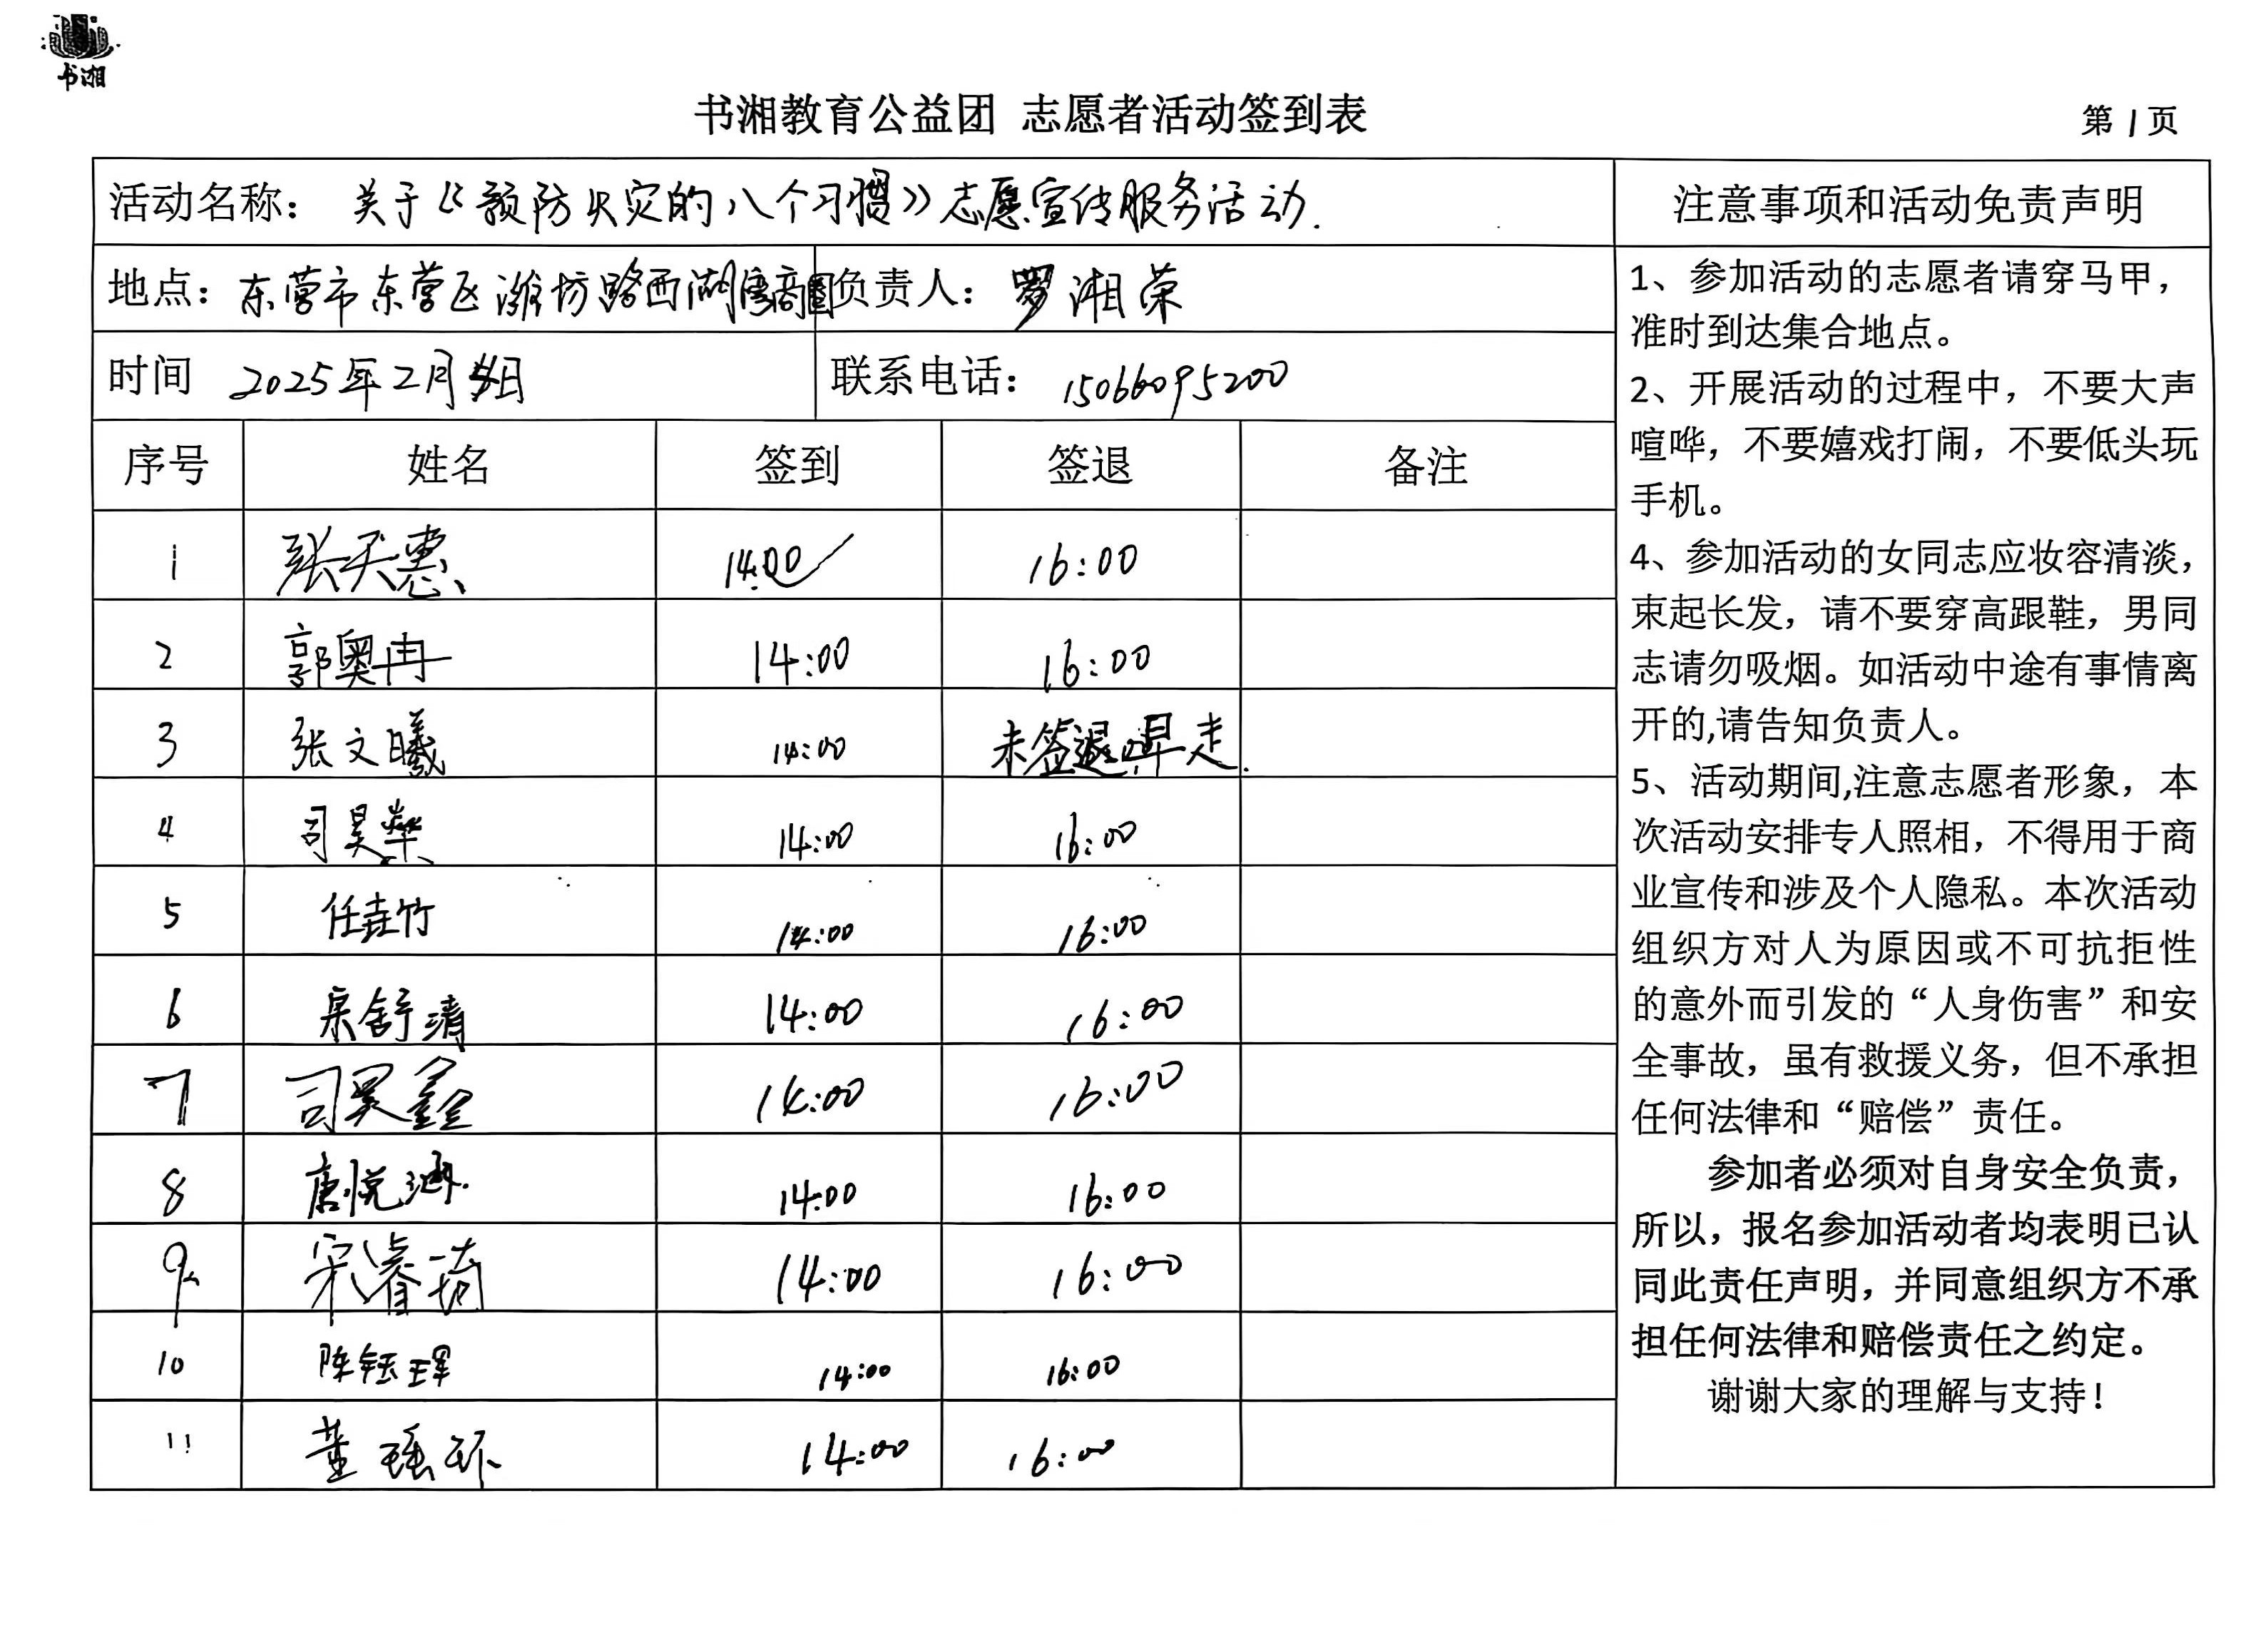 书湘
书湘教育公益团 志愿者活动签到表
第1页
活动名称：关于《预防火灾的八个习惯》志愿宣传服务活动.
注意事项和活动免责声明
地点：东营市东营区潍坊路西湖商圈 负责人：罗湘荣
时间 2025年2月日 联系电话：15066095200
序号 姓名 签到 签退 备注
1 张天惠 14:00 16:00
2 郭奥冉 14:00 16:00
3 张文曦 14:00 未签退,早走.
4 司昊 14:00 16:00
5 任垚竹 14:00 16:00
6 宋舒清 14:00 16:00
7 司昊鑫 14:00 16:00
8 唐悦涵 14:00 16:00
9 宋睿琦 14:00 16:00
10 陈钰珲 14:00 16:00
11 董瑶环 14:00 16:00
1、参加活动的志愿者请穿马甲，
准时到达集合地点。
2、开展活动的过程中，不要大声
喧哗，不要嬉戏打闹，不要低头玩
手机。
4、参加活动的女同志应妆容清淡，
束起长发，请不要穿高跟鞋，男同
志请勿吸烟。如活动中途有事情离
开的,请告知负责人。
5、活动期间,注意志愿者形象，本
次活动安排专人照相，不得用于商
业宣传和涉及个人隐私。本次活动
组织方对人为原因或不可抗拒性
的意外而引发的“人身伤害”和安
全事故，虽有救援义务，但不承担
任何法律和“赔偿”责任。
参加者必须对自身安全负责，
所以，报名参加活动者均表明已认
同此责任声明，并同意组织方不承
担任何法律和赔偿责任之约定。
谢谢大家的理解与支持！